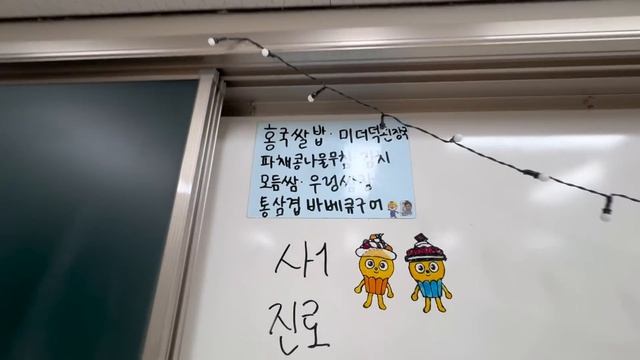 홍국쌀밥·미더덕된장국
파채콩나물무침 김치
모듬쌈·우렁쌈장
통삼겹바베큐구이
사1
진로